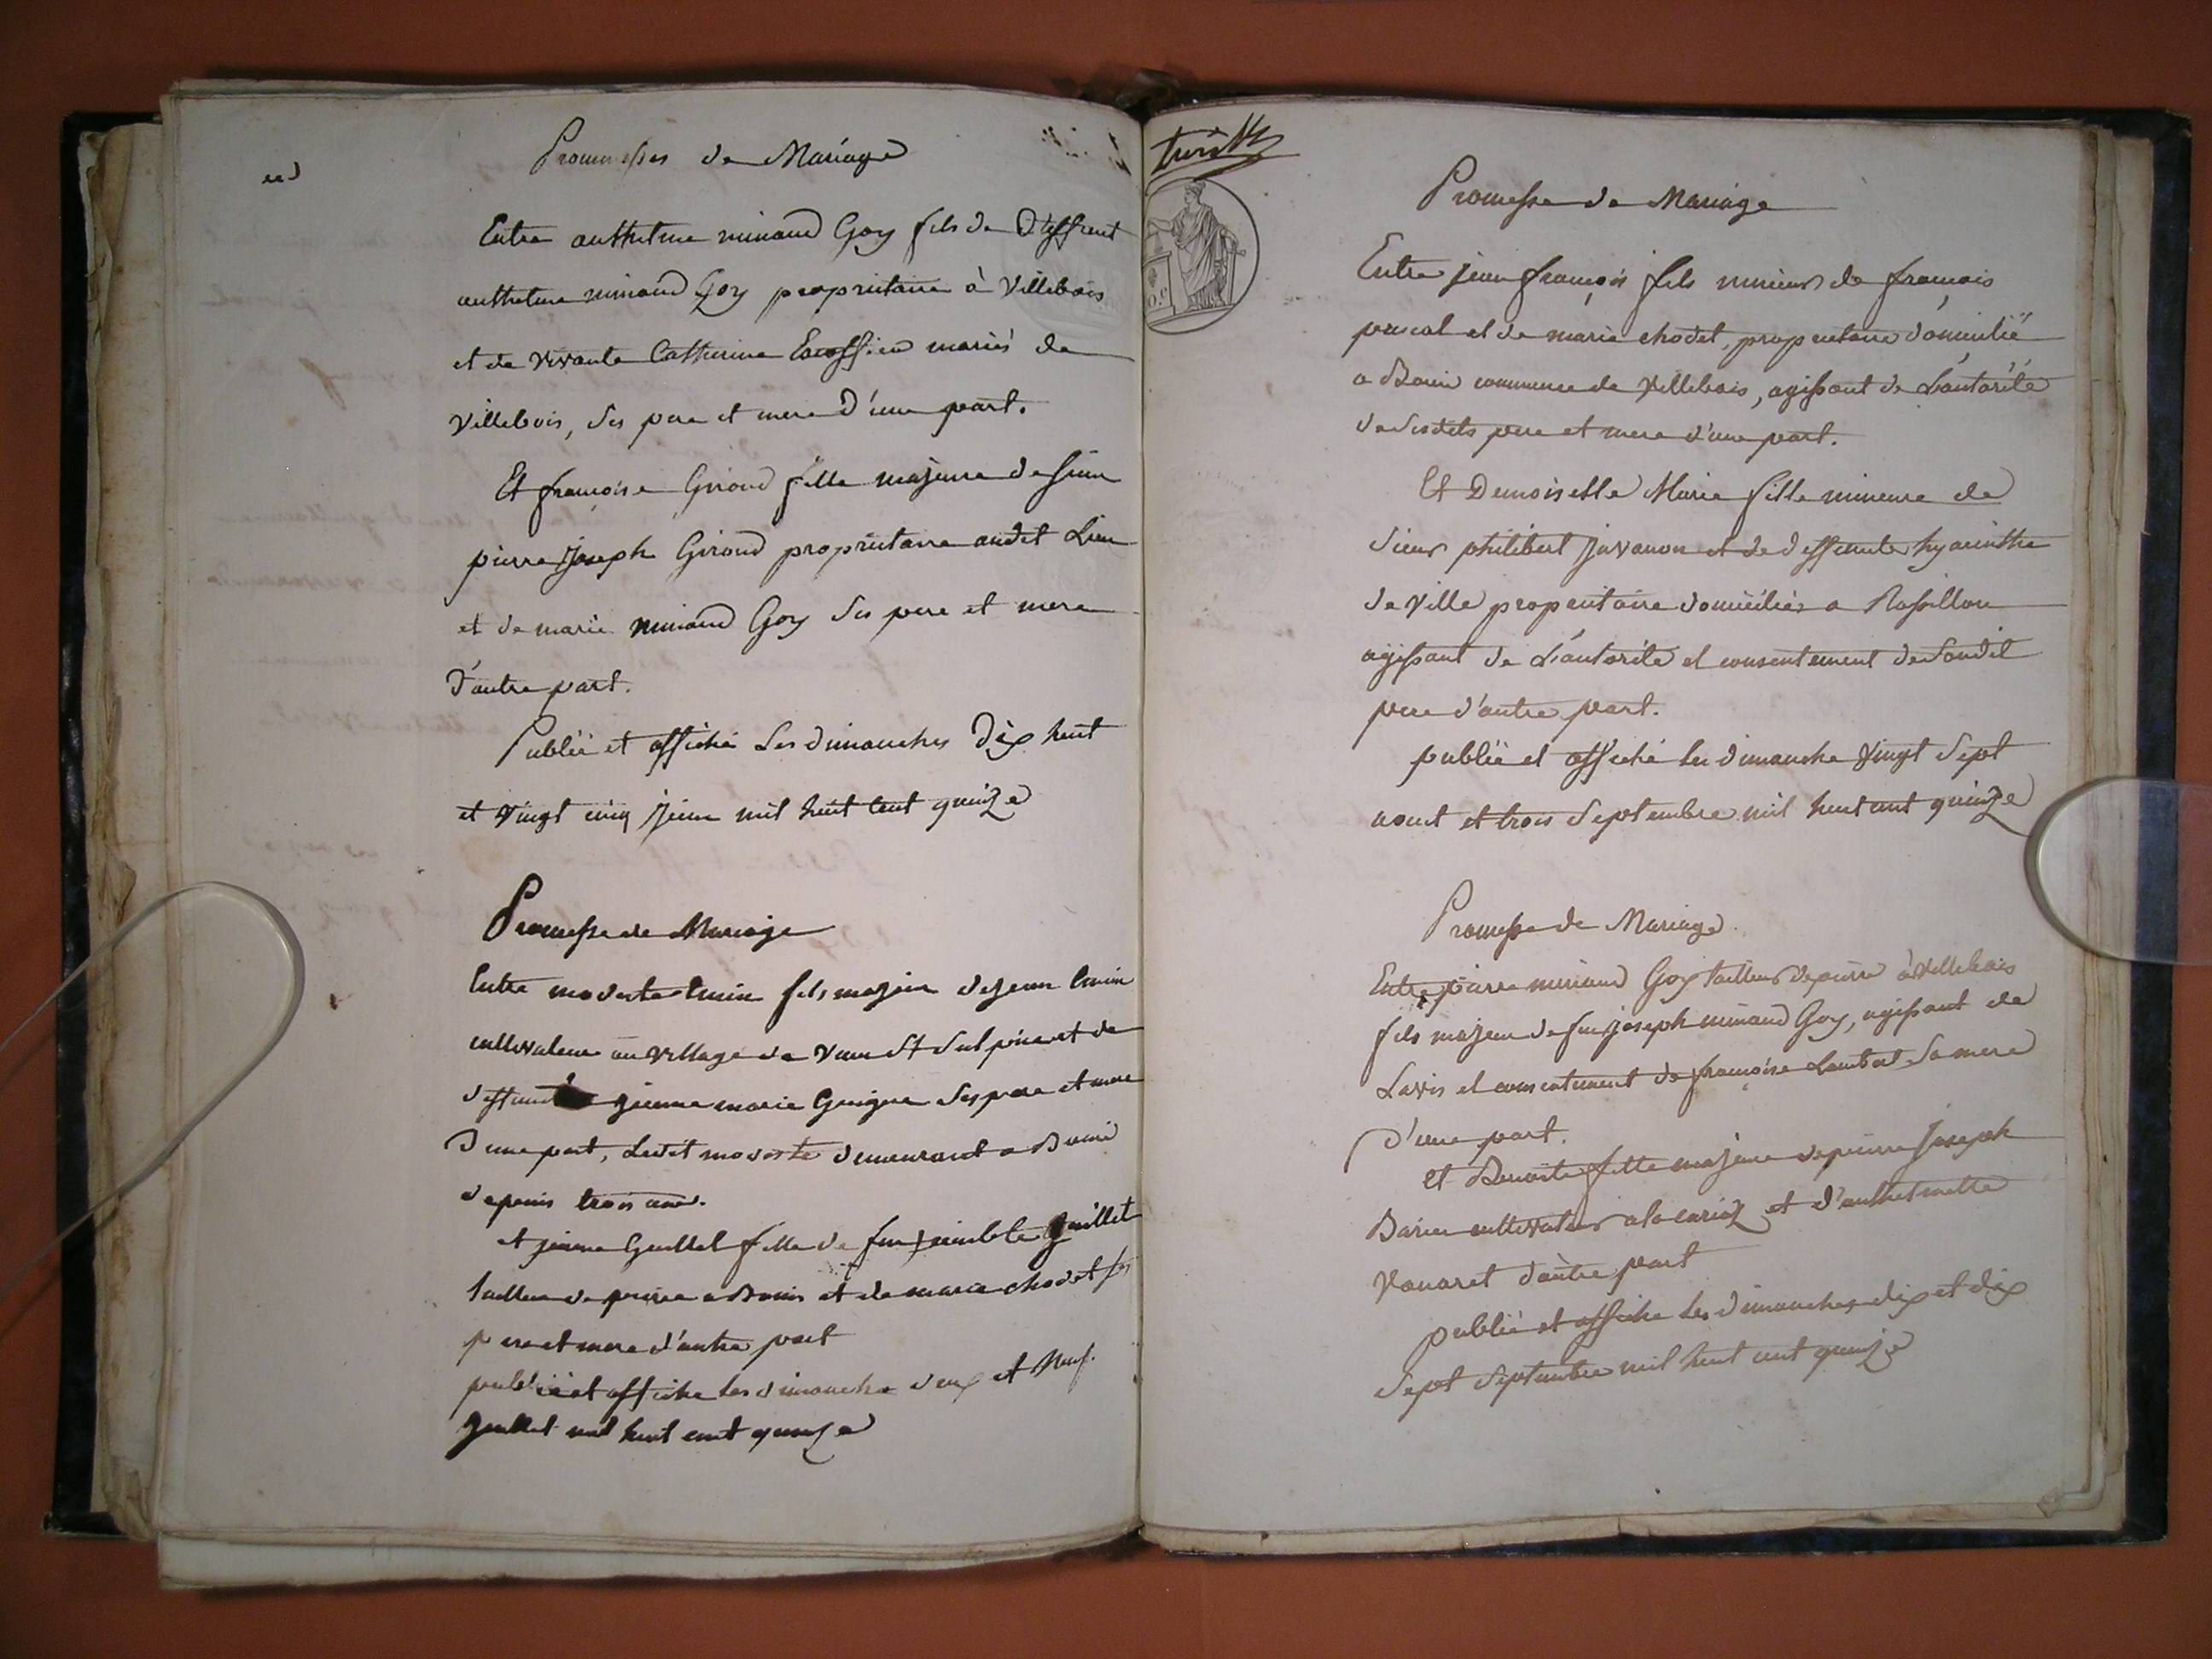 Promesses de Mariage
Entre anthelme minand Goy fils de Deffeunt
anthelme minand Goy proprietaire à Villebois
et de vivante Catherine mariés de
Villebois, ses pere et mere d'une part.
Et françoise Giroud fille majeure de sieur
pierre Joseph Giroud proprietaire audit Lieu
et de marie minand Goy ses pere et mere
d'autre part.
Publié et affiché Les dimanches Dix huit
et vingt cinq juin mil huit cent quinze
Promesse de Mariage
Entre modeste fils majeur de jean
cultivateur au village de St Sulpice et de
jeanne marie ses pere et mere
d'une part, Ledit modeste demeurant a Bouis
depuis trois ans.
et jeanne Guillet fille de feu Guillet
tailleur de pierre a Bouis et de marie chodet ses
pere et mere d'autre part
publié et affiché les dimanche deux et Neuf
juillet mil huit cent quinze
Promesse de Mariage
Entre jean françois fils mineur de françois
pascal et de marie chodet, proprietaire domicilié
a Bouis commune de Villebois, agissant de L'autorité
de sesdits pere et mere d'une part.
Et Demoiselle Marie fille mineure de
Sieur philibert Juvanon et de deffeunte hyacinthe
de Ville proprietaire domicilié a Rossillon
agissant de L'autorité et consentement de sondit
pere d'autre part.
publié et affiché les dimanche vingt sept
aout et trois Septembre mil huit cent quinze
Promesse de Mariage
Entre pierre minand Goy tailleur de pierre à Villebois
fils majeur de feu joseph minand Goy, agissant de
Lavis et consentement de françoise Lambert sa mere
d'une part.
et Benoite fille majeure de pierre Joseph
cultivateur a et d'anthelmette
Vanaret d'autre part
publié et affiché les dimanches dix et dix
sept Septembre mil huit cent quinze